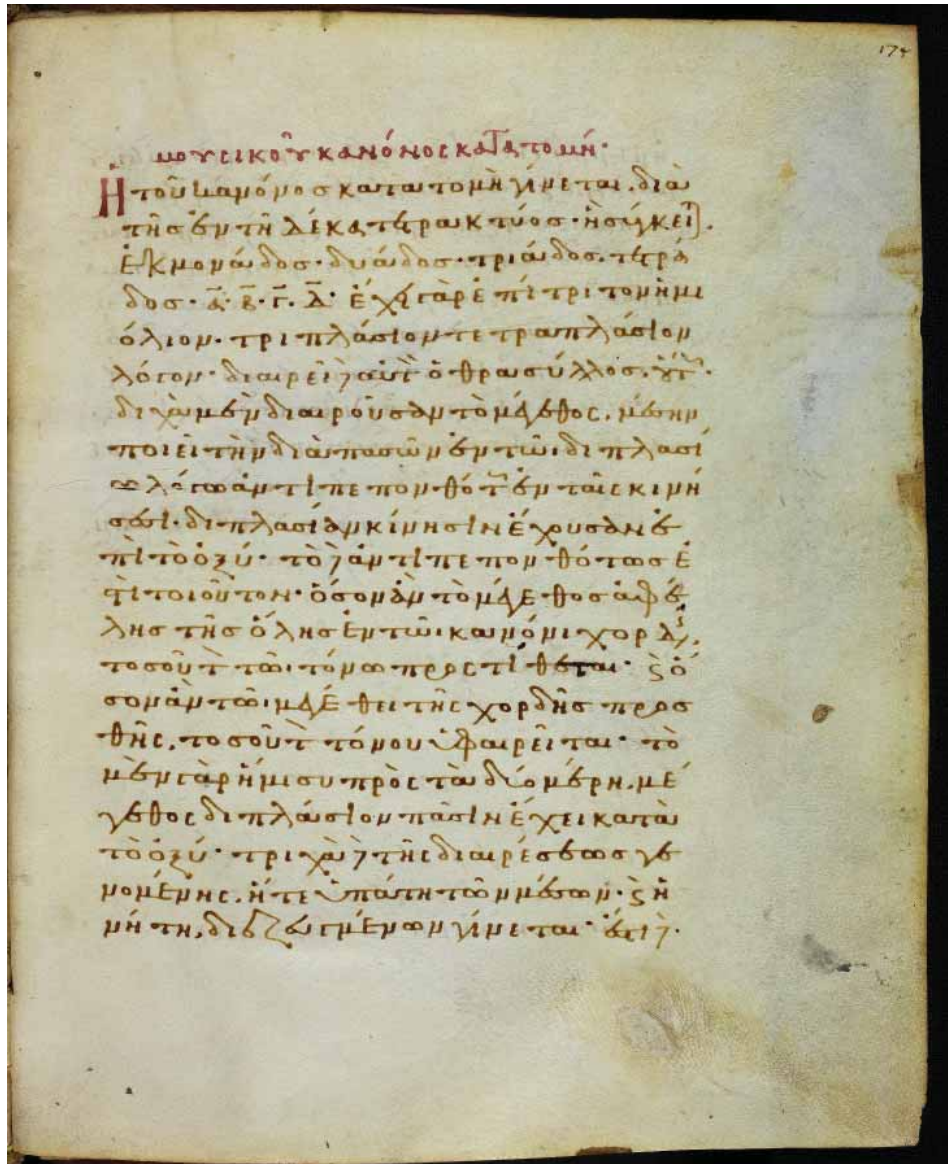 174
μουσικοῦ κανόνος κατατομή·
Ἡ τοῦ κανόνος κατατομὴ γίνεται. διὰ
τῆς ἐν τῆ δεκά τετρακτύος· ἣ σύγκειται.
ἐκ μονάδος· δυάδος· τριάδος. τετρά
δος· α· β· γ· δ· ἔχει γὰρ ἐπίτριτον ἡμι
όλιον· τριπλάσιον τετραπλάσιον
λόγον· διαιρεῖ δὲ αὐτ ὁ θράσυλλος. οὕτ·
δίχα μὲν διαιροῦσαν τὸ μέγεθος. μέσην
ποιεῖ τὴν διὰ πασῶν ἐν τῶι διπλασί
ω λόγω ἀντιπεπονθότ ἐν ταῖς κινή
σεσι· διπλασίαν κίνησιν ἔχουσαν ἐ
πὶ τὸ ὀξύ· τὸ δὲ ἀντιπεπονθότως ἐ
στι τοιοῦτον· ὅσον ἂν τὸ μέγεθος ἀφέ
λης τῆς ὅλης ἐν τῶι κανόνι χορδῆς.
τοσοῦτ τῶι τόνω προστίθεται· καὶ ὅ
σον ἂν τῶι μεγέθει τῆς χορδῆς προσ
θῆς. τοσοῦτ τόνου ὑφαιρεῖται· τὸ
μὲν γὰρ ἥμισυ πρὸς τὰ δύο μέρη. μέ
γεθος διπλάσιον πᾶσιν ἔχει κατὰ
τὸ ὀξύ· τριχὰ δὲ τῆς διαιρέσεως γε
νομένης. ἥ τε ὑπάτη τῶν μέσων· καὶ ἡ
νήτη. διεζευγμένων γίνεται· ἔστι δὲ·